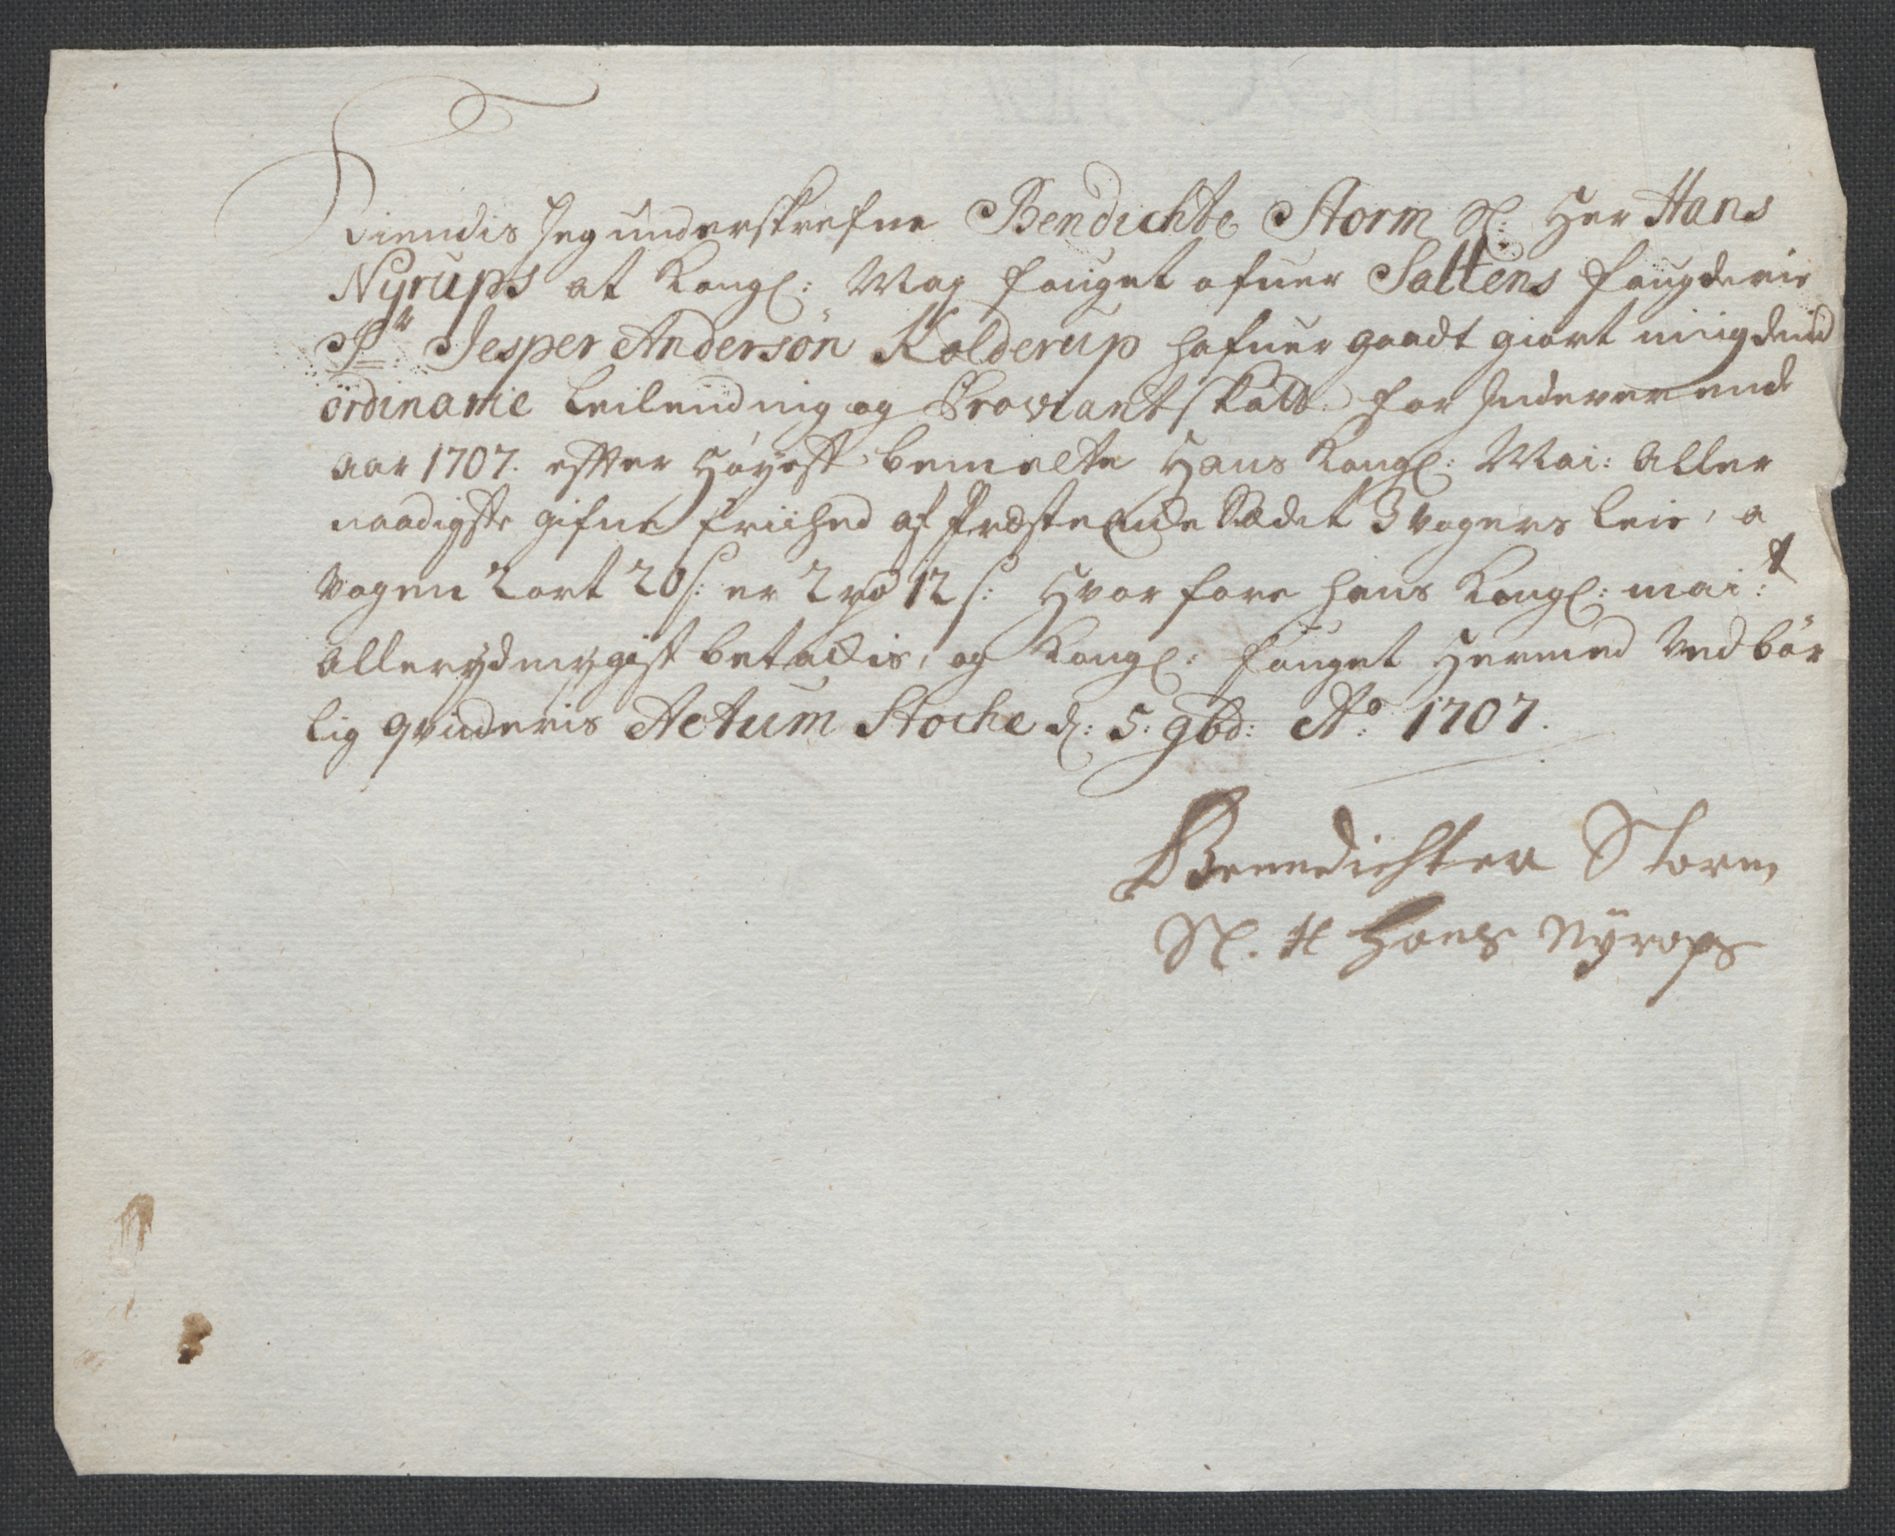 Kiendis Jeg underskrefne Bendichte Storm Sl: Her Hans
Nyrups at Kongl: May fouget ofuer Saltens fougderie
Sr Jesper Andersøn Kolderup hafuer goedt giort miig dend
ordinarie leilending og Proviantskatt for Indeverende
aar 1707. efter Høyest bemelte Hans Kongl: Mai: Aller
naadigste gifne friihed af Præste Enke Sædet 3 Voger leie, a
Vogen 2 ort 20 s: er 2 rd 12 s: Hvor fore hans Kongl: mai:t
Allerydmygist betackis, og Kongl: fouget Hermed Ved bør
lig qvinderis Actum Stocke d: 5: 9bd: Ao: 1707.
Benedichten Storm
Sl. H Hans Nÿrops